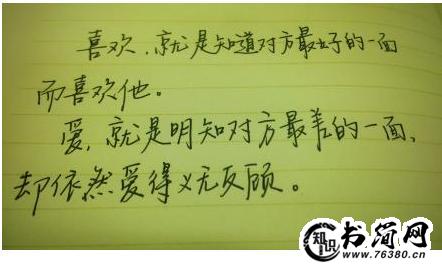 喜欢,就是知道对方最好的一面
而喜欢他。
爱,就是明知对方最差的一面,
却依然爱得义无反顾。
知识
书简网
www.76380.cn